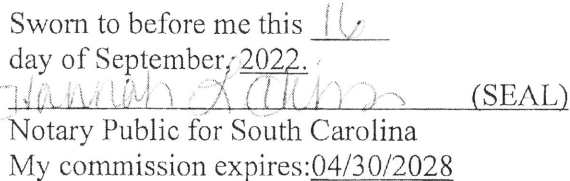 Sworn to before me this 16
day of September, 2022.
Hannah (SEAL)
Notary Public for South Carolina
My commission expires:04/30/2028